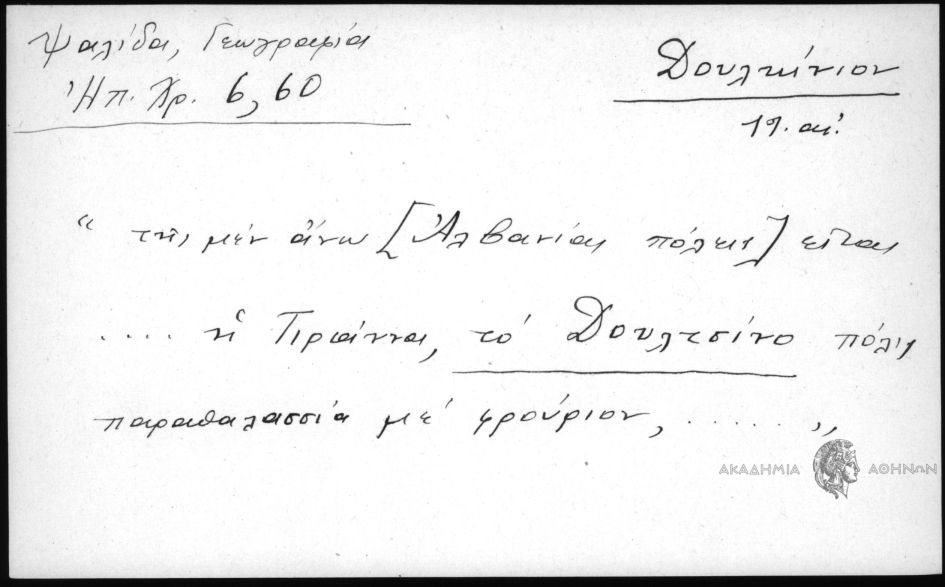 Ψαλίδα, Γεωγραφία
Ἠπ. Χρ. 6, 60
Δουλκίνιον
19. αἰ.
“ τῆς μὲν ἄνω [Ἀλβανίας πόλεις] εἶναι
.... ἡ Τιράννα, τὸ Δουλτσίνο πόλις
παραθαλασσία μὲ φρούριον, ...... „
ΑΚΑΔΗΜΙΑ ΑΘΗΝΩΝ